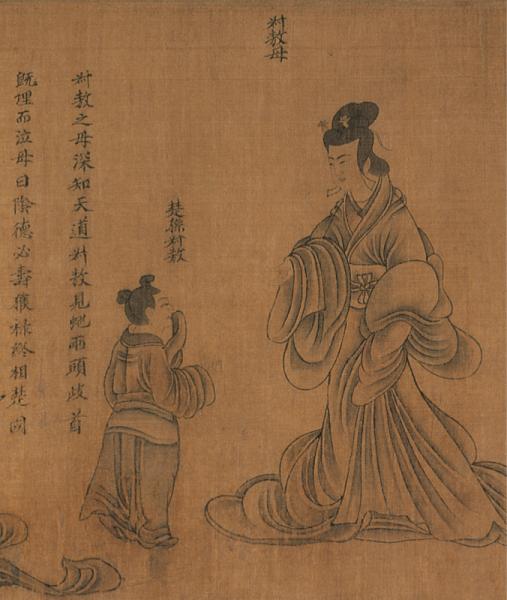 叔敖母
楚孫叔敖
叔敖之母深知天道叔敖見虵兩頭歧首
既埋而泣母曰陰德必壽獲祿終相楚國